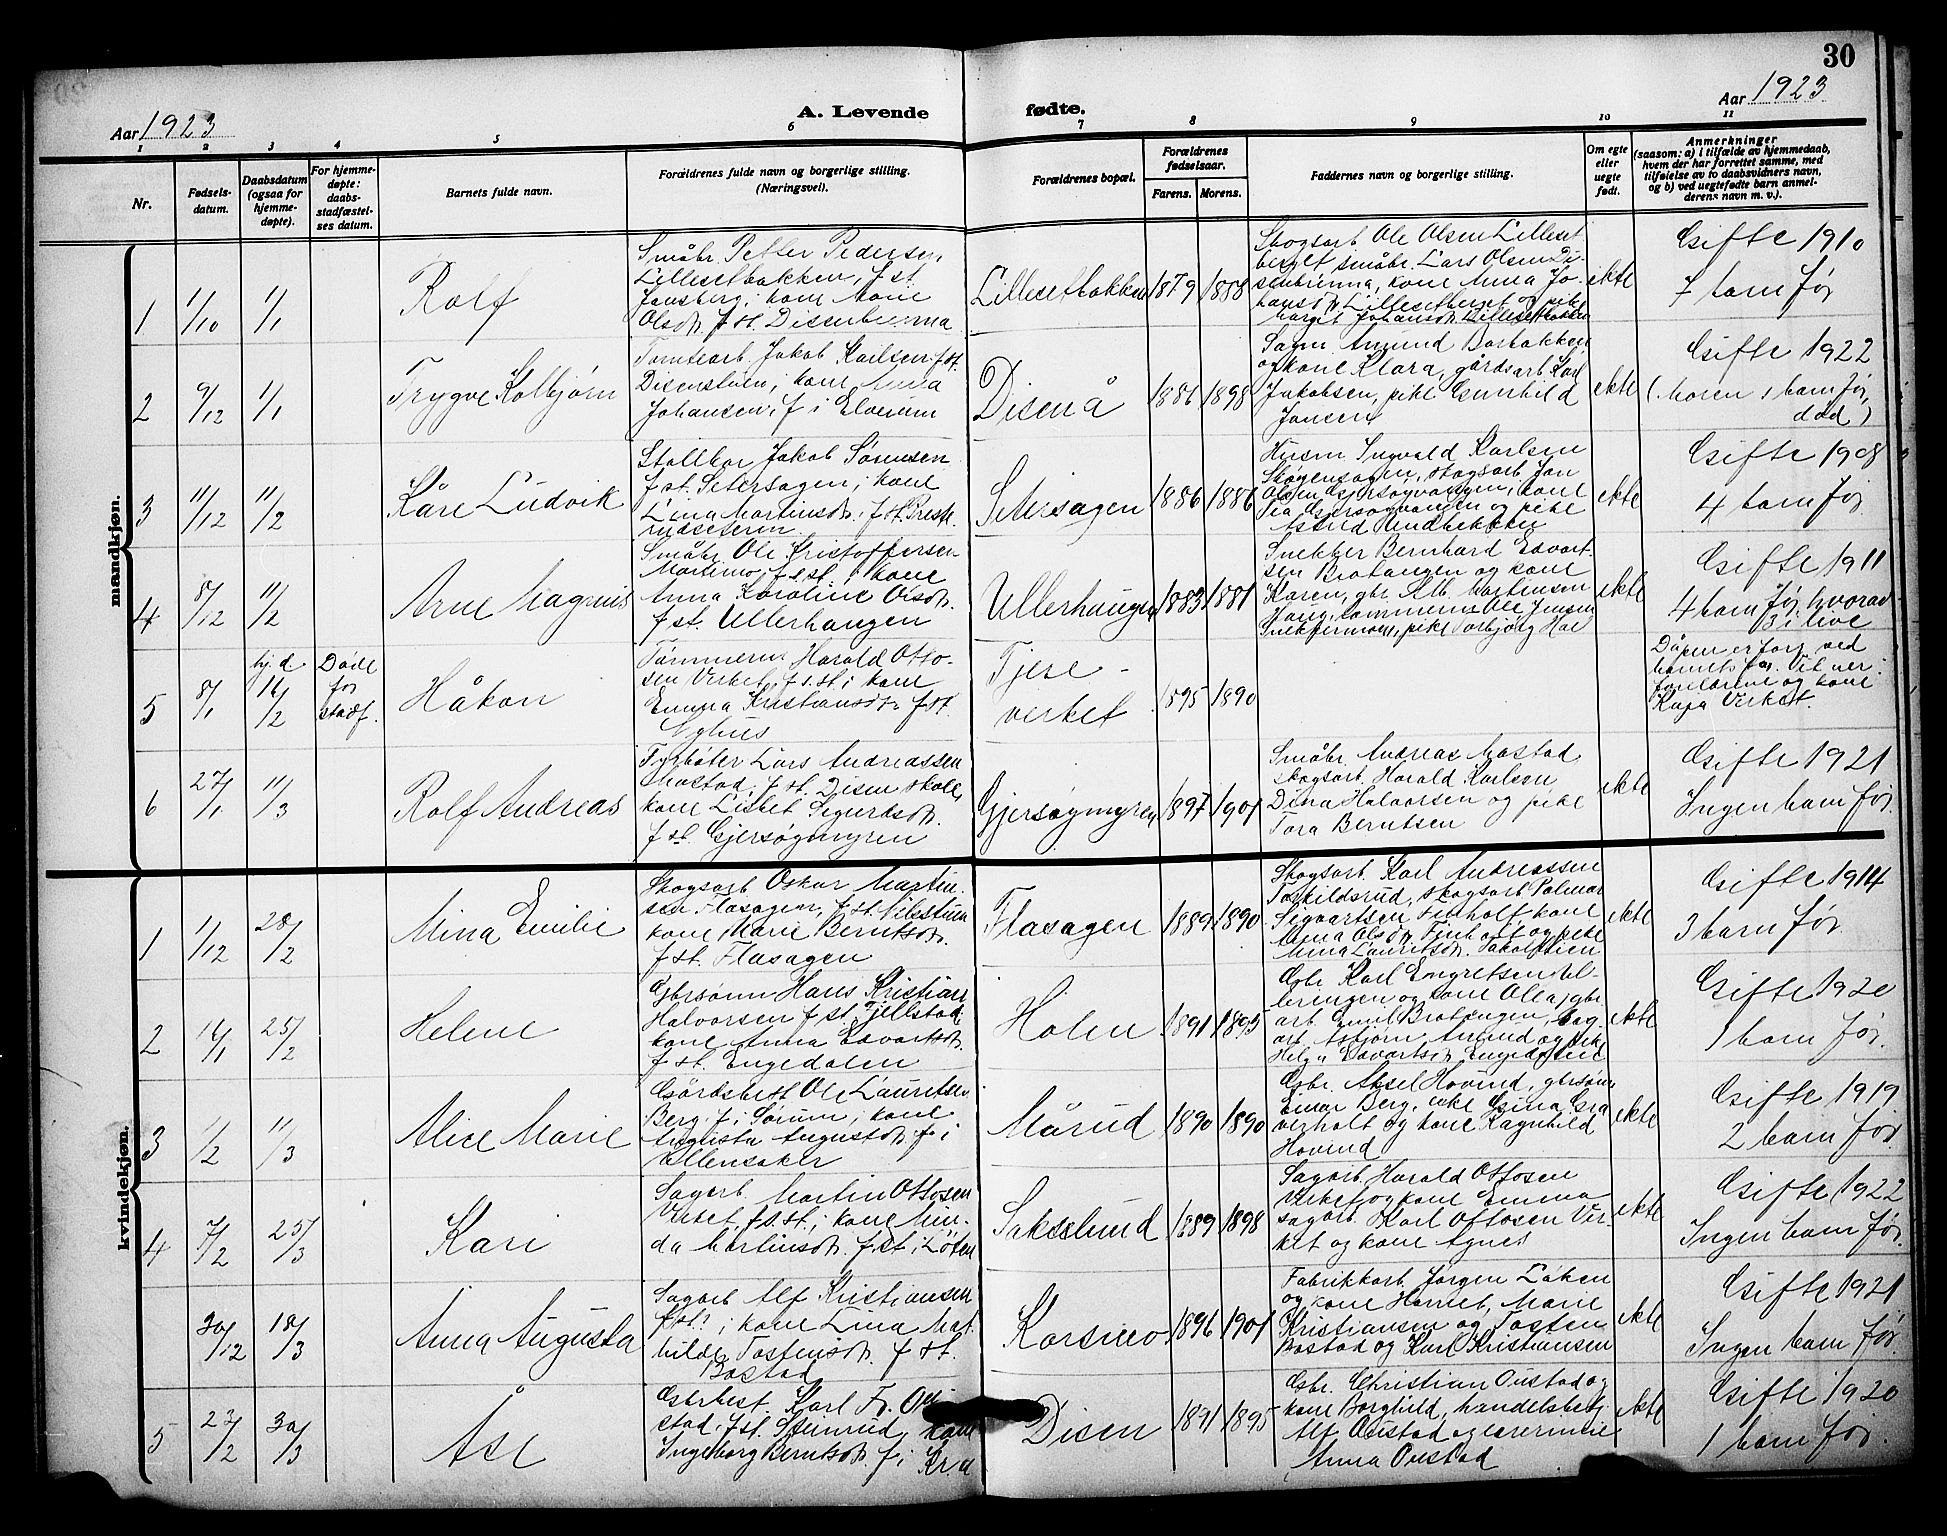 30
Aar 1923
A. Levende fødte.
Aar 1923
1 2 3 4 5 6 7 8 9 10 11
Nr.
Fødsels-
datum.
Daabsdatum
(ogsaa for
hjemme-
døpte).
For hjemme-
døpte:
daabs-
stadfæstel-
ses datum.
Barnets fulde navn.
Forældrenes fulde navn og borgerlige stilling.
(Næringsvei).
Forældrenes bopæl.
Forældrenes
fødselsaar.
Farens. Morens.
Faddernes navn og borgerlige stilling.
Om egte
eller
uegte
født.
Anmerkninger
(saasom: a) i tilfælde av hjemmedaab,
hvem der har forrettet samme, med
tilføielse av to daabsvidners navn,
og b) ved uegtefødte barn anmel-
derens navn m. v.).
mandkjøn.
1
1/10
1/1
Rolf
Småbr. Petter Pedersen
Lillesetbakken, f. st.
Jønsberg; kone
Olsdtr. f. st. Disenbrenna
Lillesetbakken
1879 1888
Skogsarb. Ole Olsen Lilleset
berget småbr. Lars Olsen Di-
senbrenna, kone Anna Jo-
hansdtr. Lillesetberget og pike
Margit Johansdtr. Lillesetbakken
ekte
Gifte 1910
7 barn før
2
9/12
1/1
Trygve Kolbjørn
Tomtearb. Jakob Karlsen f. st.
Disenstuen; kone Anna
Johansen, f. i Elverum
Disenå
1886 1898
Sagm. Amund Borbakken
og kone Klara, gårdsarb. Karl
Jakobsen, pike Gunhild
Jansen
ekte
Gifte 1922
(moren 1 barn før,
død)
3
11/12
11/2
Kåre Ludvik
Stallkar Jakob Sørensen
f. st. Setersagen; kone
Lina Martinsdtr. f. st. Prest-
rudseteren
Setersagen
1886 1886
Husm. Ingvald Karlsen
skogsarb. Jon
Olsen Gjersøgvangen, kone
Gjersøgvangen og pike
Astrid Sundbekken
ekte
Gifte 1908
4 barn før
4
8/12
11/2
Arne Magnus
Småbr. Ole Kristoffersen
Martimo, f. s. st.; kone
Anna Karoline Olsdtr.
f. st. Ullerhaugen
Ullerhaugen
1883 1881
Snekker Bernhard Edvart-
sen Brotangen og kone
Karen, gbr. Alb. Martinsen
Haug, tømmerm. Ole Jensen
Snekkermoen, pike Torbjørg Hol
ekte
Gifte 1911
4 barn før, hvorav
3 i live
5
8/1
hj. d
16/2
Døde
før
stadf.
Håkon
Tømmerm. Harald Otto-
sen Virket, f. s. st.; kone
Emma Kristiansdtr. f. st.
Nyhus
Tjere-
verket
1895 1890
Dåpen er forr. ved
barnets far. Vitner:
foreldrene og kone
Kaja Virket.
6
27/1
11/3
Rolf Andreas
Fyrbøter Lars Andreassen
Mostad, f. st. Disen skole,
kone Lisbet Sigurdsdtr.
f. st. Gjersøgmyren
Gjersøgmyren
1897 1901
Småbr. Andreas Mostad
skogsarb. Harald Karlsen
Dina Halvorsen og pike
Tora Berntsen
ekte
Gifte 1921
Ingen barn før
kvindekjøn.
1
1/12
28/2
Mina Emilie
Skogsarb. Oskar Martin-
sen Flasagen, f. st. Nilsstuen
kone Marie Berntsdtr.
f. st. Flasagen
Flasagen
1889 1890
Skogsarb. Karl Andreassen
Torkildsrud, skogsarb. Palmar
Sigvartsen Finholt kone
Anna Olsdtr. Finholt og pike
Anna Lauritsdtr.
ekte
Gifte 1914
3 barn før
2
14/1
25/2
Helene
Gbrsønn Hans Kristian
Halvorsen f. st. Fjellstad
kone Anna Edvartsdtr.
f. st. Engedalen
Holen
1891 1895
Gbr. Karl Engretsen Ul-
leringen og kone Olea, gbr.
arb. Emil Brotangen, sag-
arb. Asbjørn Amund og pike
Helga Edvartsen Engedalen
ekte
Gifte 1920
1 barn før
3
1/2
11/3
Alice Marie
Gårdsbest. Ole Lauritsen
Berg. f. i Sørum; kone
Augusta Augustsdtr. f. i
Ullensaker
Mårud
1890 1890
Gbr. Aksel Hovind, gbrsønn
Einar Berg, enke Gina Gra
verholt og kone Ragnhild
Hovind
ekte
Gifte 1919
2 barn før
4
7/2
25/3
Kari
Sagarb. Martin Ottosen
Virket, f. s. st.; kone Min-
da Martinsdtr. f. st. i Løten
Sakselund
1889 1898
Sagarb. Harald Ottosen
Virket og kone Emma
sagarb. Karl Ottosen Vir-
ket og kone Agnes
ekte
Gifte 1922
Ingen barn før
30/12
18/3
Anna Augusta
Sagarb. Alf Kristiansen
f. st.; kone Lina Mat-
hilde Tostensdtr. f. st.
Bostad
Korsmo
1896 1901
Fabrikkarb. Jørgen Løken
og kone Harriet, Marie
Kristiansen og Tosten
Bostad og Karl Kristiansen
ekte
Gifte 1921
Ingen barn før
5
23/2
30/3
Åse
Karl Fr. Ou
stad, f. st. Steinrud, kone
Ingeborg Berntsdtr. f. i Kr.a
Disen
1891 1895
Gbr. Christian Oustad og
kone Borghild, handelsbetj.
Alf Oustad og lærerinne
Anna Oustad
ekte
Gifte 1920
1 barn før.